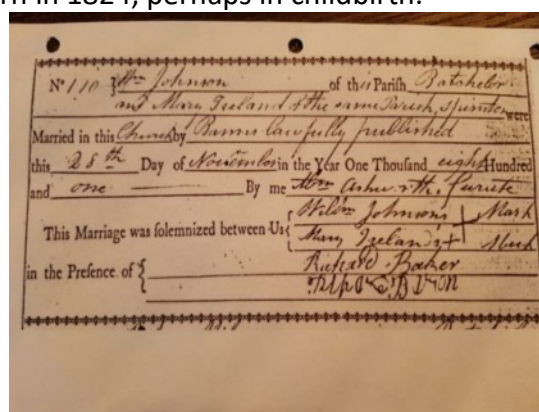 rn in 1824, perhaps in childbirth.
No 110 Wm Johnson of this Parish Batchelor
and Mary Ireland of the same Parish, Spinster were
Married in this Church by Banns lawfully published
this 28th Day of November in the Year One Thousand eight Hundred
and one By me Wm
This Marriage was solemnized between Us Johnson's + Mark
Mary Ireland's + Mark
in the Presence of Richard Baker